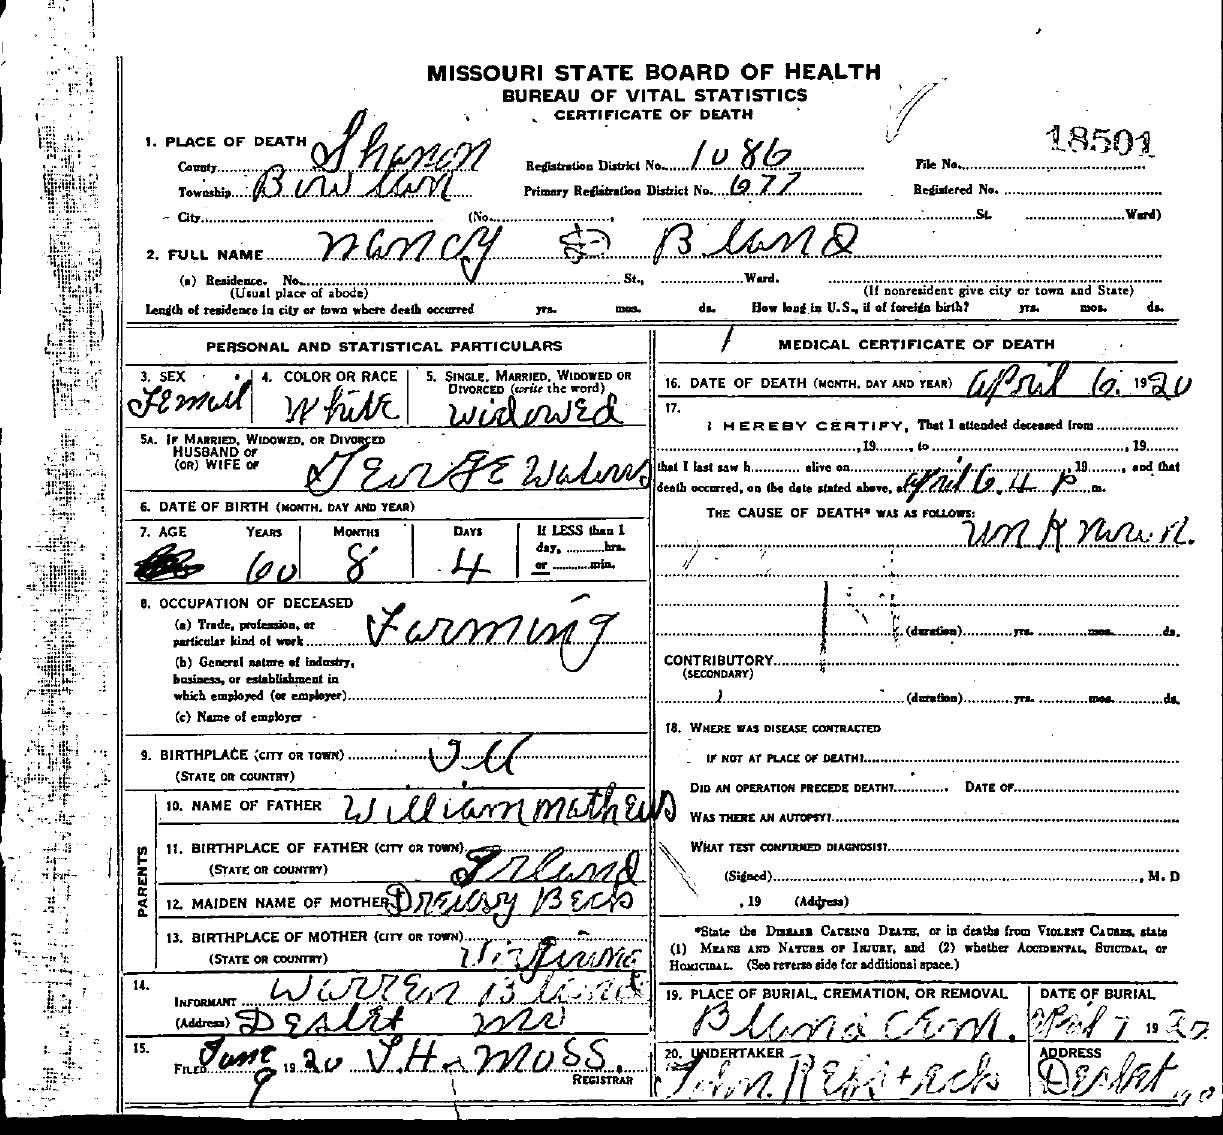 MISSOURI STATE BOARD OF HEALTH
BUREAU OF VITAL STATISTICS
CERTIFICATE OF DEATH
18501
1. PLACE OF DEATH
County Shanon Registration District No. 1086 File No.
Township Primary Registration District No. 677 Registered No.
City (No. , St. Ward)
2. FULL NAME Nancy Bland
(a) Residence. No. St., Ward.
(Usual place of abode) (If nonresident give city or town and State)
Length of residence in city or town where death occurred yrs. mos. ds. How long in U.S., if of foreign birth? yrs. mos. ds.
PERSONAL AND STATISTICAL PARTICULARS
3. SEX 4. COLOR OR RACE 5. SINGLE, MARRIED, WIDOWED OR DIVORCED (write the word)
Femil White Widowed
5A. IF MARRIED, WIDOWED, OR DIVORCED
HUSBAND OF
(OR) WIFE OF George
6. DATE OF BIRTH (MONTH, DAY AND YEAR)
7. AGE YEARS MONTHS DAYS If LESS than 1
day, hrs.
or min.
60 8 4
8. OCCUPATION OF DECEASED
(a) Trade, profession, or
particular kind of work Farming
(b) General nature of industry,
business, or establishment in
which employed (or employer)
(c) Name of employer
9. BIRTHPLACE (CITY OR TOWN) Ill
(STATE OR COUNTRY)
PARENTS
10. NAME OF FATHER William Mathews
11. BIRTHPLACE OF FATHER (CITY OR TOWN)
(STATE OR COUNTRY) Irland
12. MAIDEN NAME OF MOTHER Beck
13. BIRTHPLACE OF MOTHER (CITY OR TOWN)
(STATE OR COUNTRY)
14.
INFORMANT Warren Bland
(Address) Deslet Mo
15.
FILED June 9 1920 T.H. Moss
REGISTRAR
MEDICAL CERTIFICATE OF DEATH
16. DATE OF DEATH (MONTH, DAY AND YEAR) April 6. 1920
17.
I HEREBY CERTIFY, That I attended deceased from
, 19 , to , 19
that I last saw h alive on , 19 , and that
death occurred, on the date stated above, at April 6. 4 P m.
THE CAUSE OF DEATH* WAS AS FOLLOWS:
unKnown.
(duration) yrs. mos. ds.
CONTRIBUTORY
(SECONDARY)
(duration) yrs. mos. ds.
18. WHERE WAS DISEASE CONTRACTED
IF NOT AT PLACE OF DEATH?
DID AN OPERATION PRECEDE DEATH? DATE OF
WAS THERE AN AUTOPSY?
WHAT TEST CONFIRMED DIAGNOSIS?
(Signed) , M. D
, 19 (Address)
*State the DISEASE CAUSING DEATH, or in deaths from VIOLENT CAUSES, state
(1) MEANS AND NATURE OF INJURY, and (2) whether ACCIDENTAL, SUICIDAL, or
HOMICIDAL. (See reverse side for additional space.)
19. PLACE OF BURIAL, CREMATION, OR REMOVAL DATE OF BURIAL
Bland Cem. April 7 1920
20. UNDERTAKER ADDRESS
John Deslet